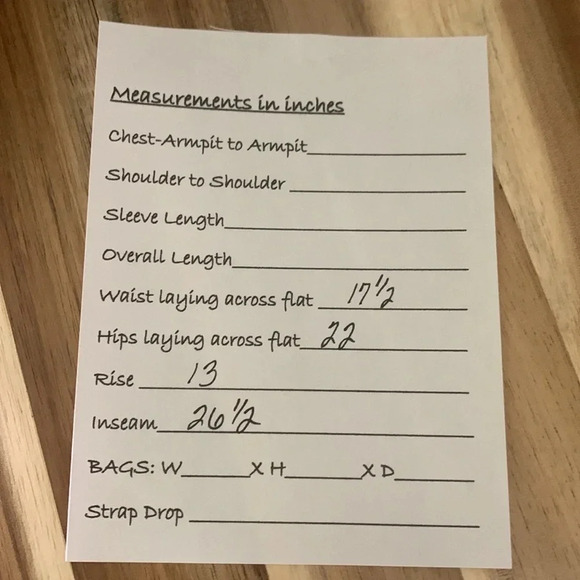 Measurements in inches
Chest-Armpit to Armpit
Shoulder to Shoulder
Sleeve Length
Overall Length
Waist laying across flat 17 1/2
Hips laying across flat 22
Rise 13
Inseam 26 1/2
BAGS: W X H X D
Strap Drop